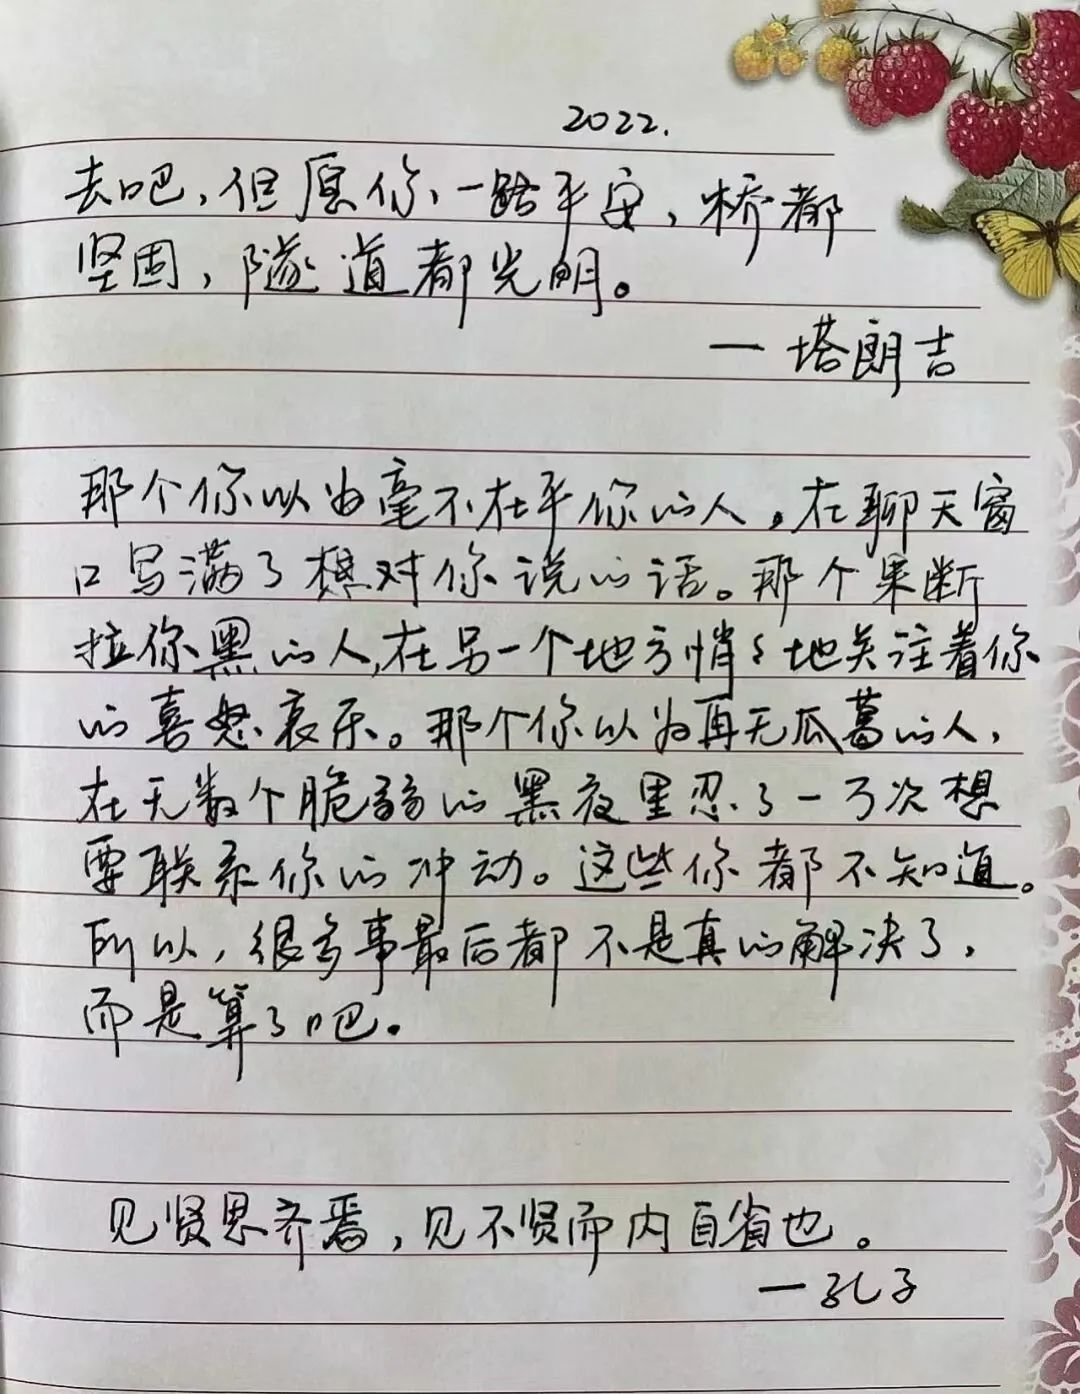 2022.
去吧,但愿你一路平安,桥都
坚固,隧道都光明。
一塔朗吉
那个你以为毫不在乎你的人,在聊天窗
口写满了想对你说的话。那个果断
拉你黑的人,在另一个地方悄々地关注着你
的喜怒哀乐。那个你以为再无瓜葛的人,
在无数个脆弱的黑夜里忍了一万次想
要联系你的冲动。这些你都不知道。
所以,很多事最后都不是真的解决了,
而是算了吧。
见贤思齐焉,见不贤而内自省也。
一孔子